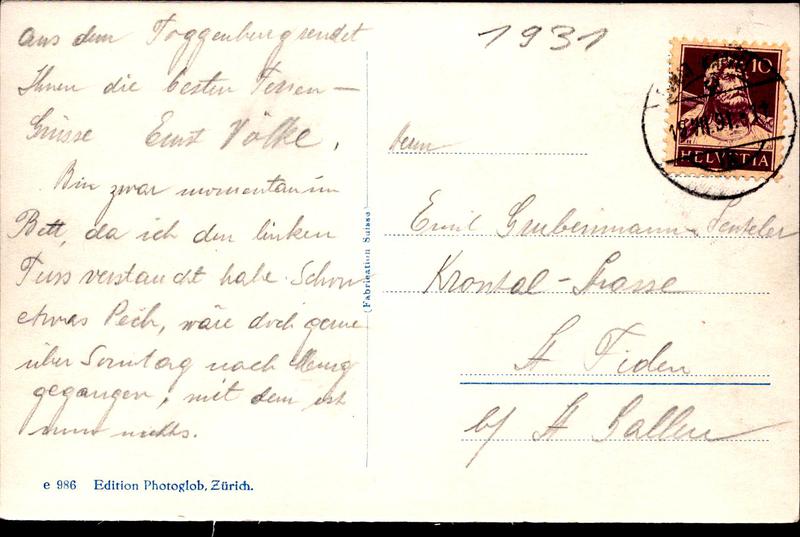 aus dem Toggenburg sendet
Ihnen die besten Ferien-
Grüsse Ernst Völke,
Bin zwar momentan im
Bett, da ich den linken
Fuss verstaucht habe. Schon
etwas Pech, wäre doch gerne
über Sonntag nach
gegangen, mit dem ist
nun nichts.
e 986 Edition Photoglob, Zürich.
(Fabrication Suisse)
1931
10
HELVETIA
Herrn
Emil Grubenmann-
Krontal-Strasse
St Fiden
b/ St Gallen